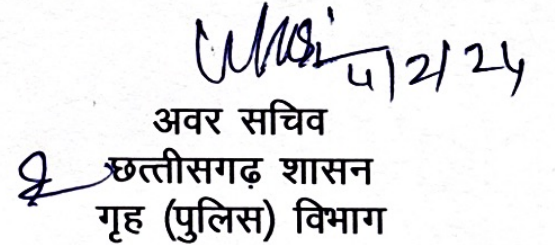 4/2/24
अवर सचिव
छत्तीसगढ़ शासन
गृह (पुलिस) विभाग